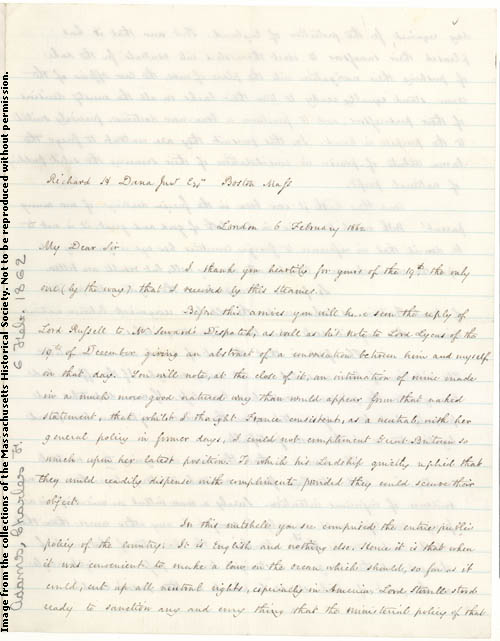 Richard H Dana Junr Esqr Boston Mass
London 6 February 1862
My Dear Sir
I thank you heartily for yours of the 19th the only
one (by the way) that I received by this steamer.
Before this arrives you will have seen the reply of
Lord Russell to Mr Seward's Despatch, as well as his note to Lord Lyons of the
19th of December giving an abstract of a conversation between him and myself
on that day. You will note, at the close of it, an intimation of mine made
in a much more good natured way than would appear from that naked
statement, that whilst I thought France consistent, as a neutral, with her
general policy in former days, I could not compliment Great Britain so
much upon her latest position. To which his Lordship quickly replied that
they would readily dispense with compliments provided they could secure their
object.
In this nutshell you see comprised the entire public
policy of the country. It is English and nothing else. Hence it is that when
it was convenient to make a law on the ocean which should, so far as it
could, cut up all neutral rights, especially in America, Lord Stowell stood
ready to sanction any and every thing that the ministerial policy of that
Image from the collections of the Massachusetts Historical Society. Not to be reproduced without permission.
Adams, Charles F.
6 Feb. 1862